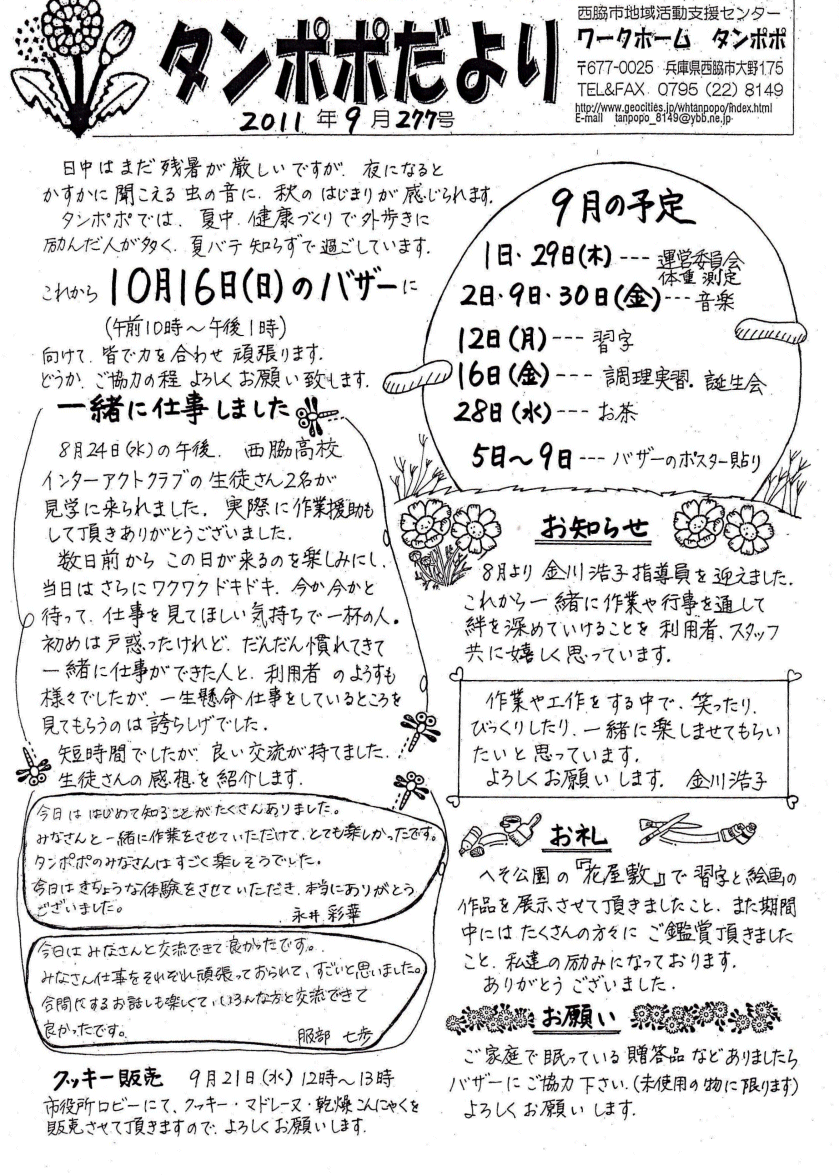 タンポポだより
2011年9月277号
西脇市地域活動支援センター
ワークホーム タンポポ
〒677-0025 兵庫県西脇市大野175
TEL&FAX 0795(22)8149
http://www.geocities.jp/whtanpopo/index.html
E-mail tanpopo_8149@ybb.ne.jp
日中はまだ残暑が厳しいですが、夜になると
かすかに聞こえる虫の音に、秋のはじまりが感じられます。
タンポポでは、夏中、健康づくりで外歩きに
励んだ人が多く、夏バテ知らずで過ごしています。
これから10月16日(日)のバザーに
(午前10時~午後1時)
向けて、皆で力を合わせ頑張ります。
どうか、ご協力の程よろしくお願い致します。
一緒に仕事しました
8月24日(水)の午後、西脇高校
インターアクトクラブの生徒さん2名が
見学に来られました。実際に作業援助も
して頂きありがとうございました。
数日前からこの日が来るのを楽しみにし、
当日はさらにワクワクドキドキ、今か今かと
待って、仕事を見てほしい気持ちで一杯の人。
初めは戸惑ったけれど、だんだん慣れてきて
一緒に仕事ができた人と、利用者のようすも
様々でしたが、一生懸命仕事をしているところを
見てもらうのは誇らしげでした。
短時間でしたが、良い交流が持てました。
生徒さんの感想を紹介します。
今日ははじめて知ることがたくさんありました。
みなさんと一緒に作業をさせていただけて、とても楽しかったです。
タンポポのみなさんはすごく楽しそうでした。
今日はきちょうな体験をさせていただき、本当にありがとう
ございました。
永井 彩華
今日はみなさんと交流できて良かったです。
みなさん仕事をそれぞれ頑張っておられて、すごいと思いました。
合間にするお話しも楽しくて、いろんな方と交流できて
良かったです。
服部 七歩
クッキー販売 9月21日(水)12時~13時
市役所ロビーにて、クッキー・マドレーヌ・乾燥こんにゃくを
販売させて頂きますので、よろしくお願いします。
9月の予定
1日・29日(木)---運営委員会
体重測定
2日・9日・30日(金)---音楽
12日(月)---習字
16日(金)---調理実習・誕生会
28日(水)---お茶
5日~9日---バザーのポスター貼り
お知らせ
8月より金川浩子指導員を迎えました。
これから一緒に作業や行事を通して
絆を深めていけることを利用者、スタッフ
共に嬉しく思っています。
作業や工作をする中で、笑ったり、
びっくりしたり、一緒に楽しませてもらい
たいと思っています。
よろしくお願いします。 金川浩子
お礼
へそ公園の『花屋敷』で習字と絵画の
作品を展示させて頂きましたこと、また期間
中にはたくさんの方々にご鑑賞頂きました
こと、私達の励みになっております。
ありがとうございました。
お願い
ご家庭で眠っている贈答品などありましたら
バザーにご協力下さい。(未使用の物に限ります)
よろしくお願いします。